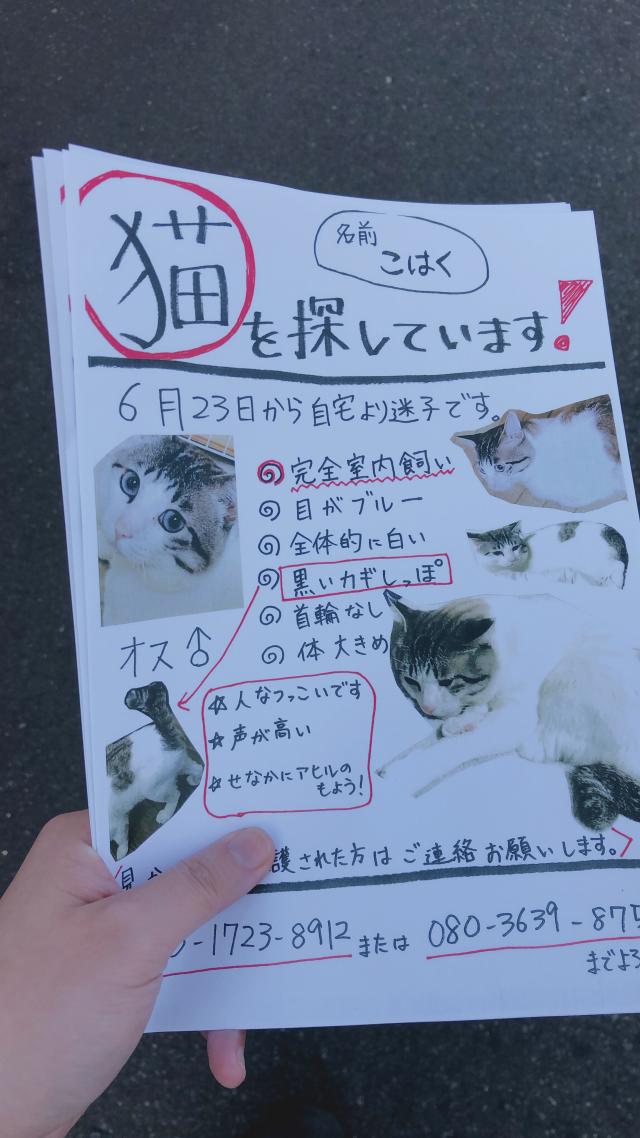 名前
こはく
猫を探しています!
6月23日から自宅より迷子です。
完全室内飼い
目がブルー
全体的に白い
黒いカギしっぽ
首輪なし
体大きめ
オス♂
☆人なつっこいです
☆声が高い
☆せなかにアヒルの
もよう!
護された方はご連絡お願いします。
-1723-8912 または 080-3639-875
までよ